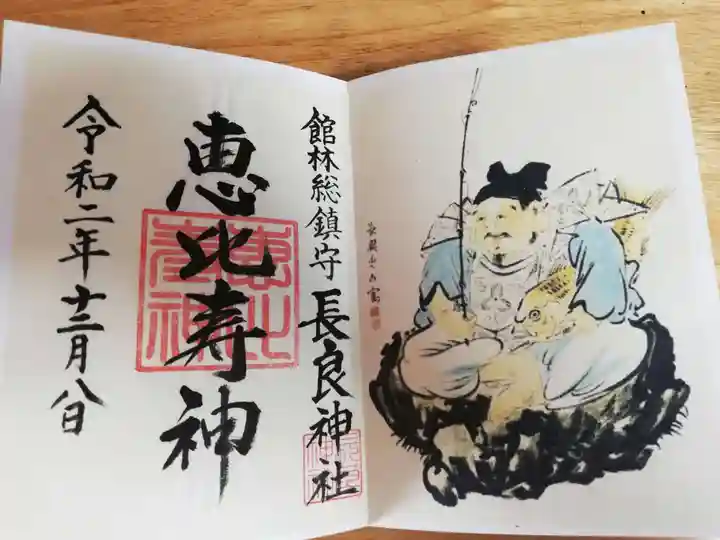 館林総鎮守 長良神社
恵比寿神
令和二年十二月八日